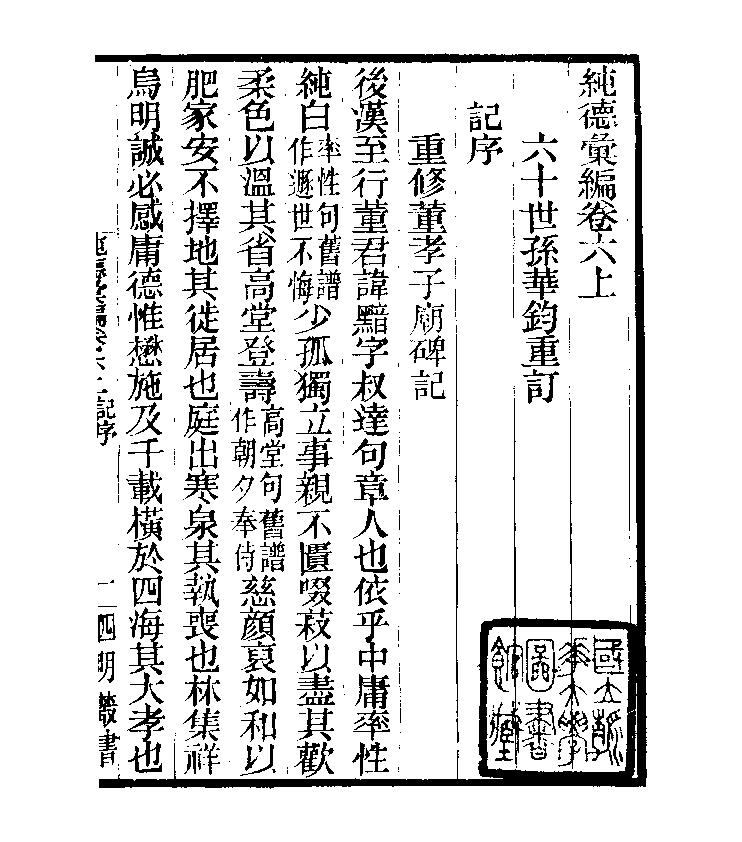 純德彙編卷六上
六十世孫華鈞重訂
記序
重修董孝子廟碑記
後漢至行董君諱黯字叔達句章人也依乎中庸率性
純白率性句舊譜作遯世不悔少孤獨立事親不匱啜菽以盡其歡
柔色以溫其省高堂登壽高堂句舊譜作朝夕奉侍慈顏哀如和以
肥家安不擇地其徙居也庭出寒泉其執喪也林集祥
烏明誠必感庸德惟懋施及千載橫於四海其大孝也
純德彙編卷六上 記序 一 四明叢書
國立
大學
圖書
館藏